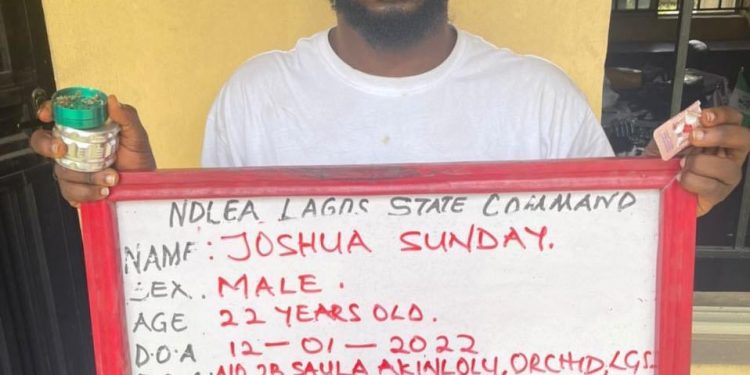 NDLEA LAGOS STATE COMMAND
NAME: JOSHUA SUNDAY.
SEX. MALE.
AGE 22 YEARS OLD.
D.O.A 12-01-2022
NO 2B SAULA AKINLOLU, ORCHID, LGS